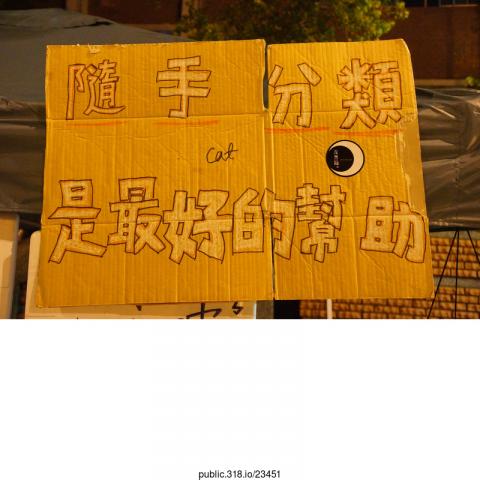 隨手分類
cat
是最好的幫助
public.318.io/23451